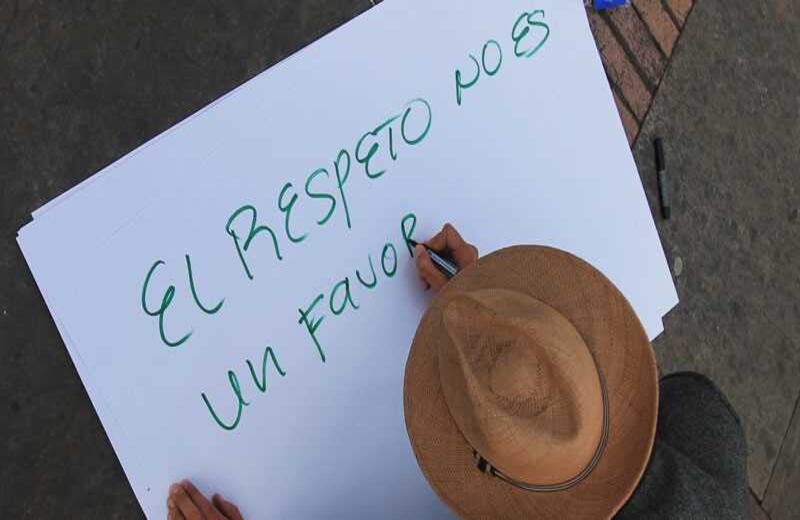 EL RESPETO NO ES
un Favor